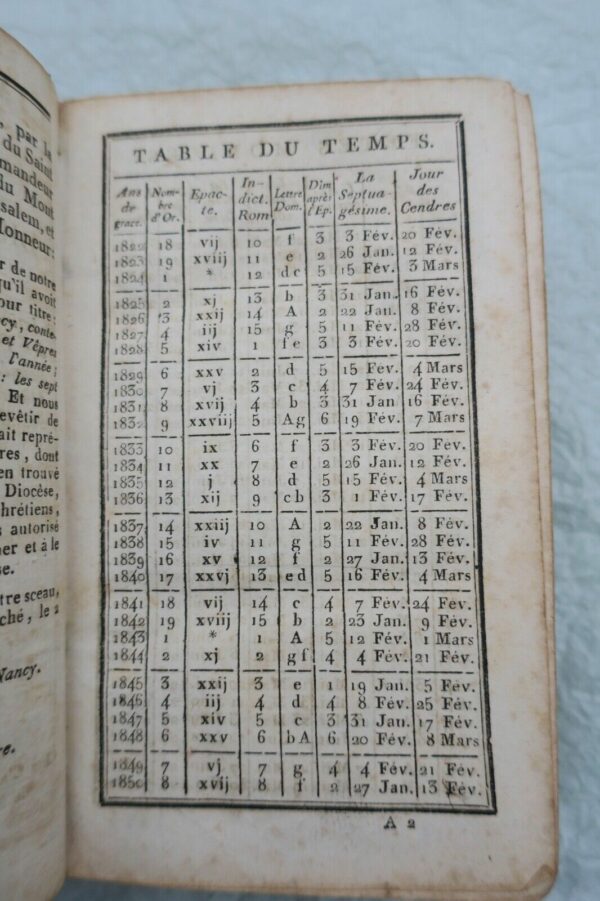 , par la
du Saint
mandeur
du Mont
salem, et
Honneur:
r de notre
qu'il avoit
our titre:
cy, conte-
et Vêpres
l'année;
: les sept
Et nous
evêtir de
ait repré-
res, dont
en trouvé
Diocèse,
hrétiens,
s autorisé
er et à le
se.
tre sceau,
ché, le 2
Nancy.
re.
TABLE DU TEMPS.
Ans de grace. Nombre d'Or. Epacte. Indict. Rom Lettre Dom. Dim après l'Ep. La Septuagésime. Jour des Cendres
1822 18 vij 10 f 3 3 Fév. 20 Fév.
1823 19 xviij 11 e 2 26 Jan. 12 Fév.
1824 1 * 12 dc 5 15 Fév. 3 Mars
1825 2 xj 13 b 3 31 Jan. 16 Fév.
1826 3 xxij 14 A 2 22 Jan. 8 Fév.
1827 4 iij 15 g 5 11 Fév. 28 Fév.
1828 5 xiv 1 fe 3 3 Fév. 20 Fév.
1829 6 xxv 2 d 5 15 Fév. 4 Mars
1830 7 vj 3 c 4 7 Fév. 24 Fév.
1831 8 xvij 4 b 3 31 Jan 16 Fév.
1832 9 xxviij 5 Ag 6 19 Fév. 7 Mars
1833 10 ix 6 f 3 3 Fév. 20 Fév.
1834 11 xx 7 e 2 26 Jan. 12 Fév.
1835 12 j 8 d 5 15 Fév. 4 Mars
1836 13 xij 9 cb 3 1 Fév. 17 Fév.
1837 14 xxiij 10 A 2 22 Jan. 8 Fév.
1838 15 iv 11 g 5 11 Fév. 28 Fév.
1839 16 xv 12 f 2 27 Jan. 13 Fév.
1840 17 xxvj 13 ed 5 16 Fév. 4 Mars
1841 18 vij 14 c 4 7 Fév. 24 Fév.
1842 19 xviij 15 b 2 23 Jan. 9 Fév.
1843 1 * 1 A 5 12 Fév. 1 Mars
1844 2 xj 2 gf 4 4 Fév. 21 Fév.
1845 3 xxij 3 e 1 19 Jan. 5 Fév.
1846 4 iij 4 d 4 8 Fév. 25 Fév.
1847 5 xiv 5 c 3 31 Jan. 17 Fév.
1848 6 xxv 6 bA 6 20 Fév. 8 Mars
1849 7 vj 7 g 4 4 Fév. 21 Fév.
1850 8 xvij 8 f 2 27 Jan. 13 Fév.
A 2